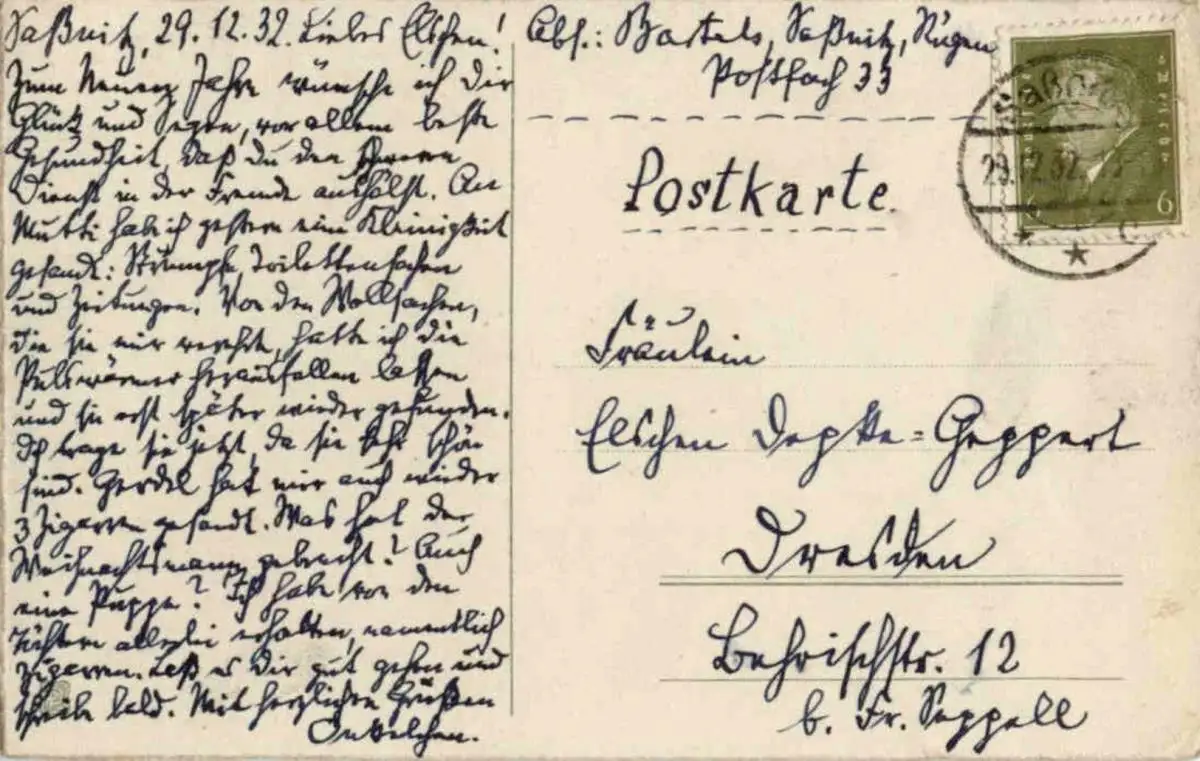 Saßnitz, 29.12.32. Liebes Elschen!
Zum Neuen Jahre wünsche ich Dir
Glück und Segen, vor allem beste
Gesundheit, daß Du den schweren
Dienst in der Fremde aushälst. An
Mutti hab ich gestern eine Kleinigkeit
gesandt: Strümpfe, Toilettensachen
und Zeitungen. Von den Wollsachen,
die sie mir verehrte, hatte ich die
Pulswärmer herausfallen lassen
und sie erst später wieder gefunden.
Ich trage sie jetzt, da sie sehr schön
sind. Gerdel hat mir auch wieder
3 Zigarren gesandt. Was hat der
Weihnachtsmann gebracht? Auch
eine Puppe? Ich habe von den
Töchtern allerlei erhalten, namentlich
Zigarren. Laß es Dir gut gehen und
schreibe bald. Mit herzlichen Grüßen
Onkelchen.
Abs.: Bartels, Saßnitz, Rügen
Postfach 33
Postkarte.
29.12.32
6
Fräulein
Elschen Depke=Geppert
Dresden
Behrischstr. 12
b. Fr. Seppell